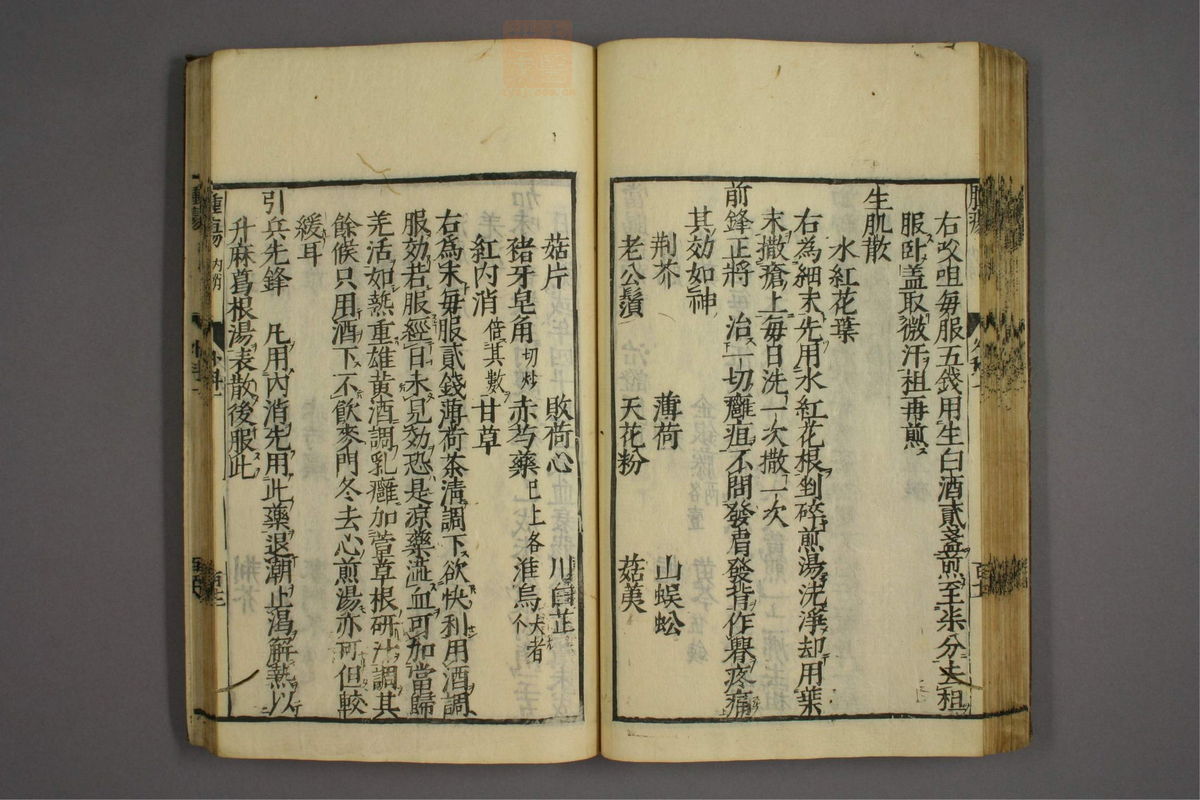 右㕮咀每服五錢用生白酒貳盞煎至柒分去柤
服卧盖取微汗柤再煎
生肌散
水紅花葉
右為細末先用水紅花根剉碎煎湯洗淨却用葉
末撒瘡上每日洗一次撒一次
前鋒正將 治一切癰疽不問發眉發背作臖疼痛
其効如神
荆芥 薄荷 山蜈蚣
老公鬚 天花粉 菇荑
菇片 敗荷心 川白芷
豬牙皂角切炒 赤芍藥已上各 淮烏个大者
紅內消倍其數 甘草
右為末每服貳錢薄荷茶清調下欲快利用酒調
服効若服經日未見効恐是凉藥澁血可加當歸
羌活如熱重雄黃酒調乳癰加萱草根研汁調其
餘候只用酒下不飲麥門冬去心煎湯亦可但較
緩耳
引兵先鋒 凡用內消先用此藥退潮止渴解熱以
升麻葛根湯表散後服此
腫瘍